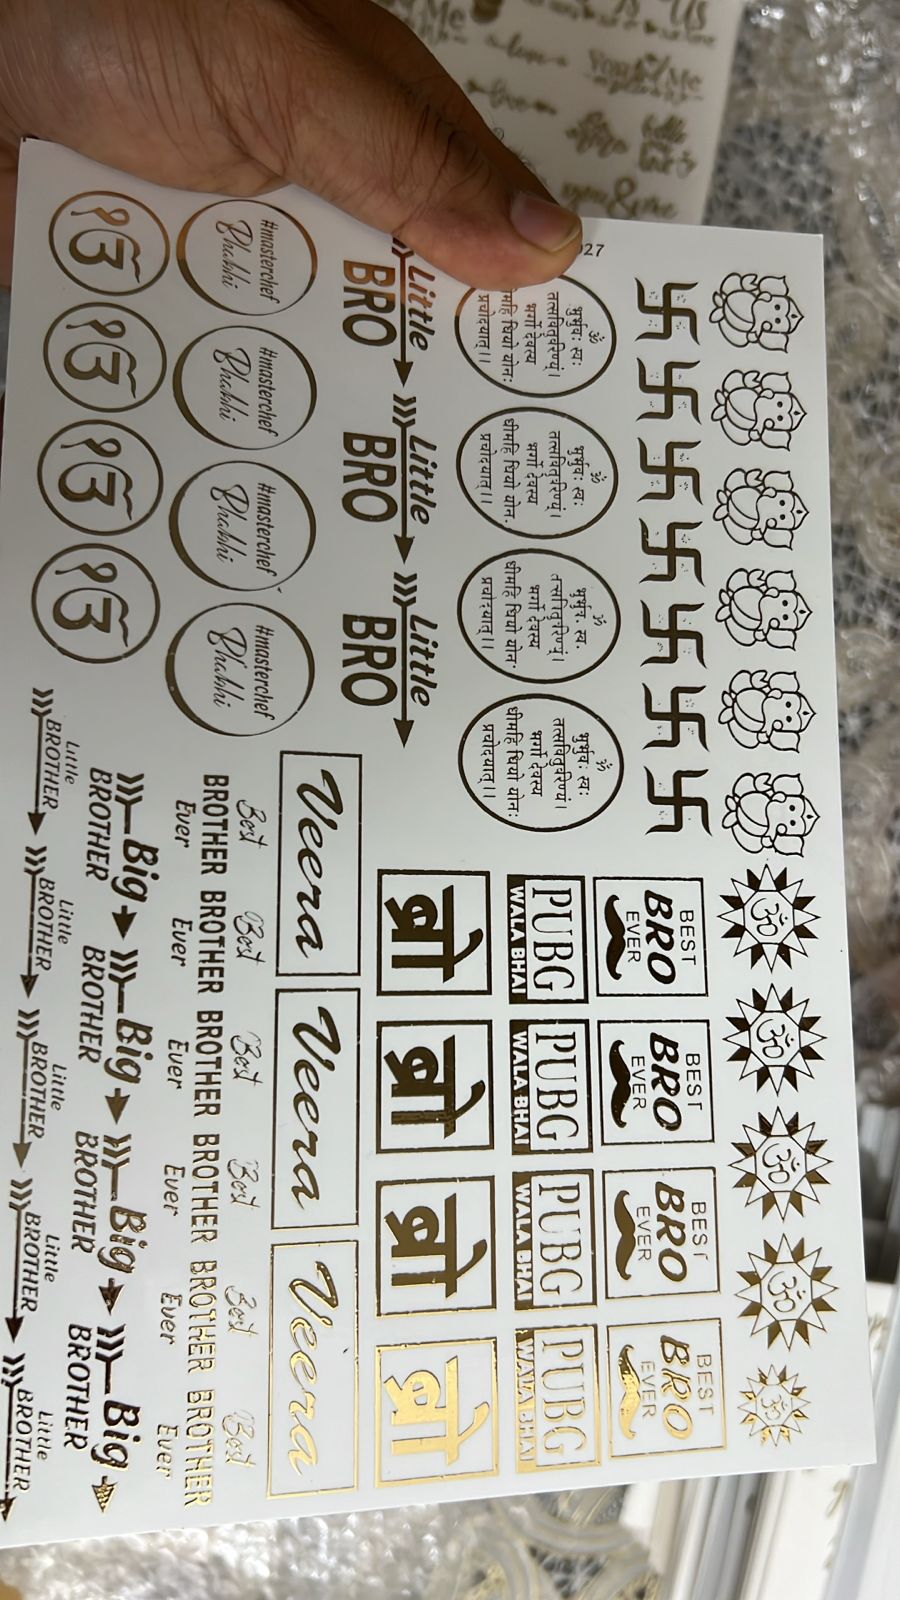 027
ॐ ॐ ॐ ॐ ॐ
BEST
BRO
EVER
BEST
BRO
EVER
BEST
BRO
EVER
BEST
BRO
EVER
ॐ
भुर्भुवः स्वः
तत्सवितुवरिण्यं।
भर्गो देवस्य
महि धियो योनः
प्रचोदयात्।।
ॐ
भुर्भुवः स्वः
तत्सवितुवरिण्यं।
भर्गो देवस्य
धीमहि धियो योनः
प्रचोदयात्।।
ॐ
भुर्भुवः स्वः
तत्सवितुवरिण्यं।
भर्गो देवस्य
धीमहि धियो योनः
प्रचोदयात्।।
ॐ
भुर्भुवः स्वः
तत्सवितुवरिण्यं।
भर्गो देवस्य
धीमहि धियो योनः
प्रचोदयात्।।
PUBG
WALA BHAI
PUBG
WALA BHAI
PUBG
WALA BHAI
PUBG
WALA BHAI
Little
BRO
Little
BRO
Little
BRO
ब्रो
ब्रो
ब्रो
ब्रो
#masterchef
Bhabhi
#masterchef
Bhabhi
#masterchef
Bhabhi
#masterchef
Bhabhi
Veera
Veera
Veera
ੴ ੴ ੴ ੴ
Best Best Best Best Best Best
BROTHER BROTHER BROTHER BROTHER BROTHER BROTHER
Ever Ever Ever Ever Ever Ever
Big Big Big Big
BROTHER BROTHER BROTHER BROTHER
Little Little Little Little Little
BROTHER BROTHER BROTHER BROTHER BROTHER